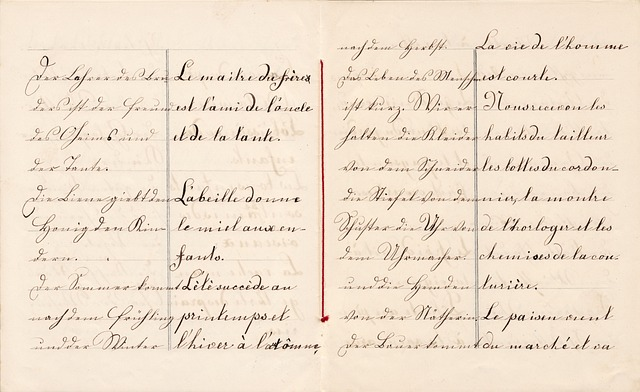 Der Lehrer des Bru
ders ist der Freund
des Oheims und
der Tante.
Die Biene giebt den
Honig den Kin-
dern.
Der Sommer kommt
nach dem Frühling
und der Winter
Le maitre du frères
est l'ami de l'oncle
et de la tante.
L'abeille donne
le miel aux en-
fants.
L'été succède au
printemps et
l'hiver à l'
nach dem Herbst.
Das Leben des Mensch
ist kurz. Wir er
halten die Kleider
von dem Schneider
die Stiefel von dem
Schuster die Uhr von
dem Uhrmacher.
und die Hemden
von der Nätherin.
Der Bauer kommt
La vie de l'homme
est courte.
Nous recevon les
habits du tailleur
les bottes du cordon-
nier, la montre
de l'horloger et les
chemises de la cou-
turière.
Le paisen vient
du marché et va